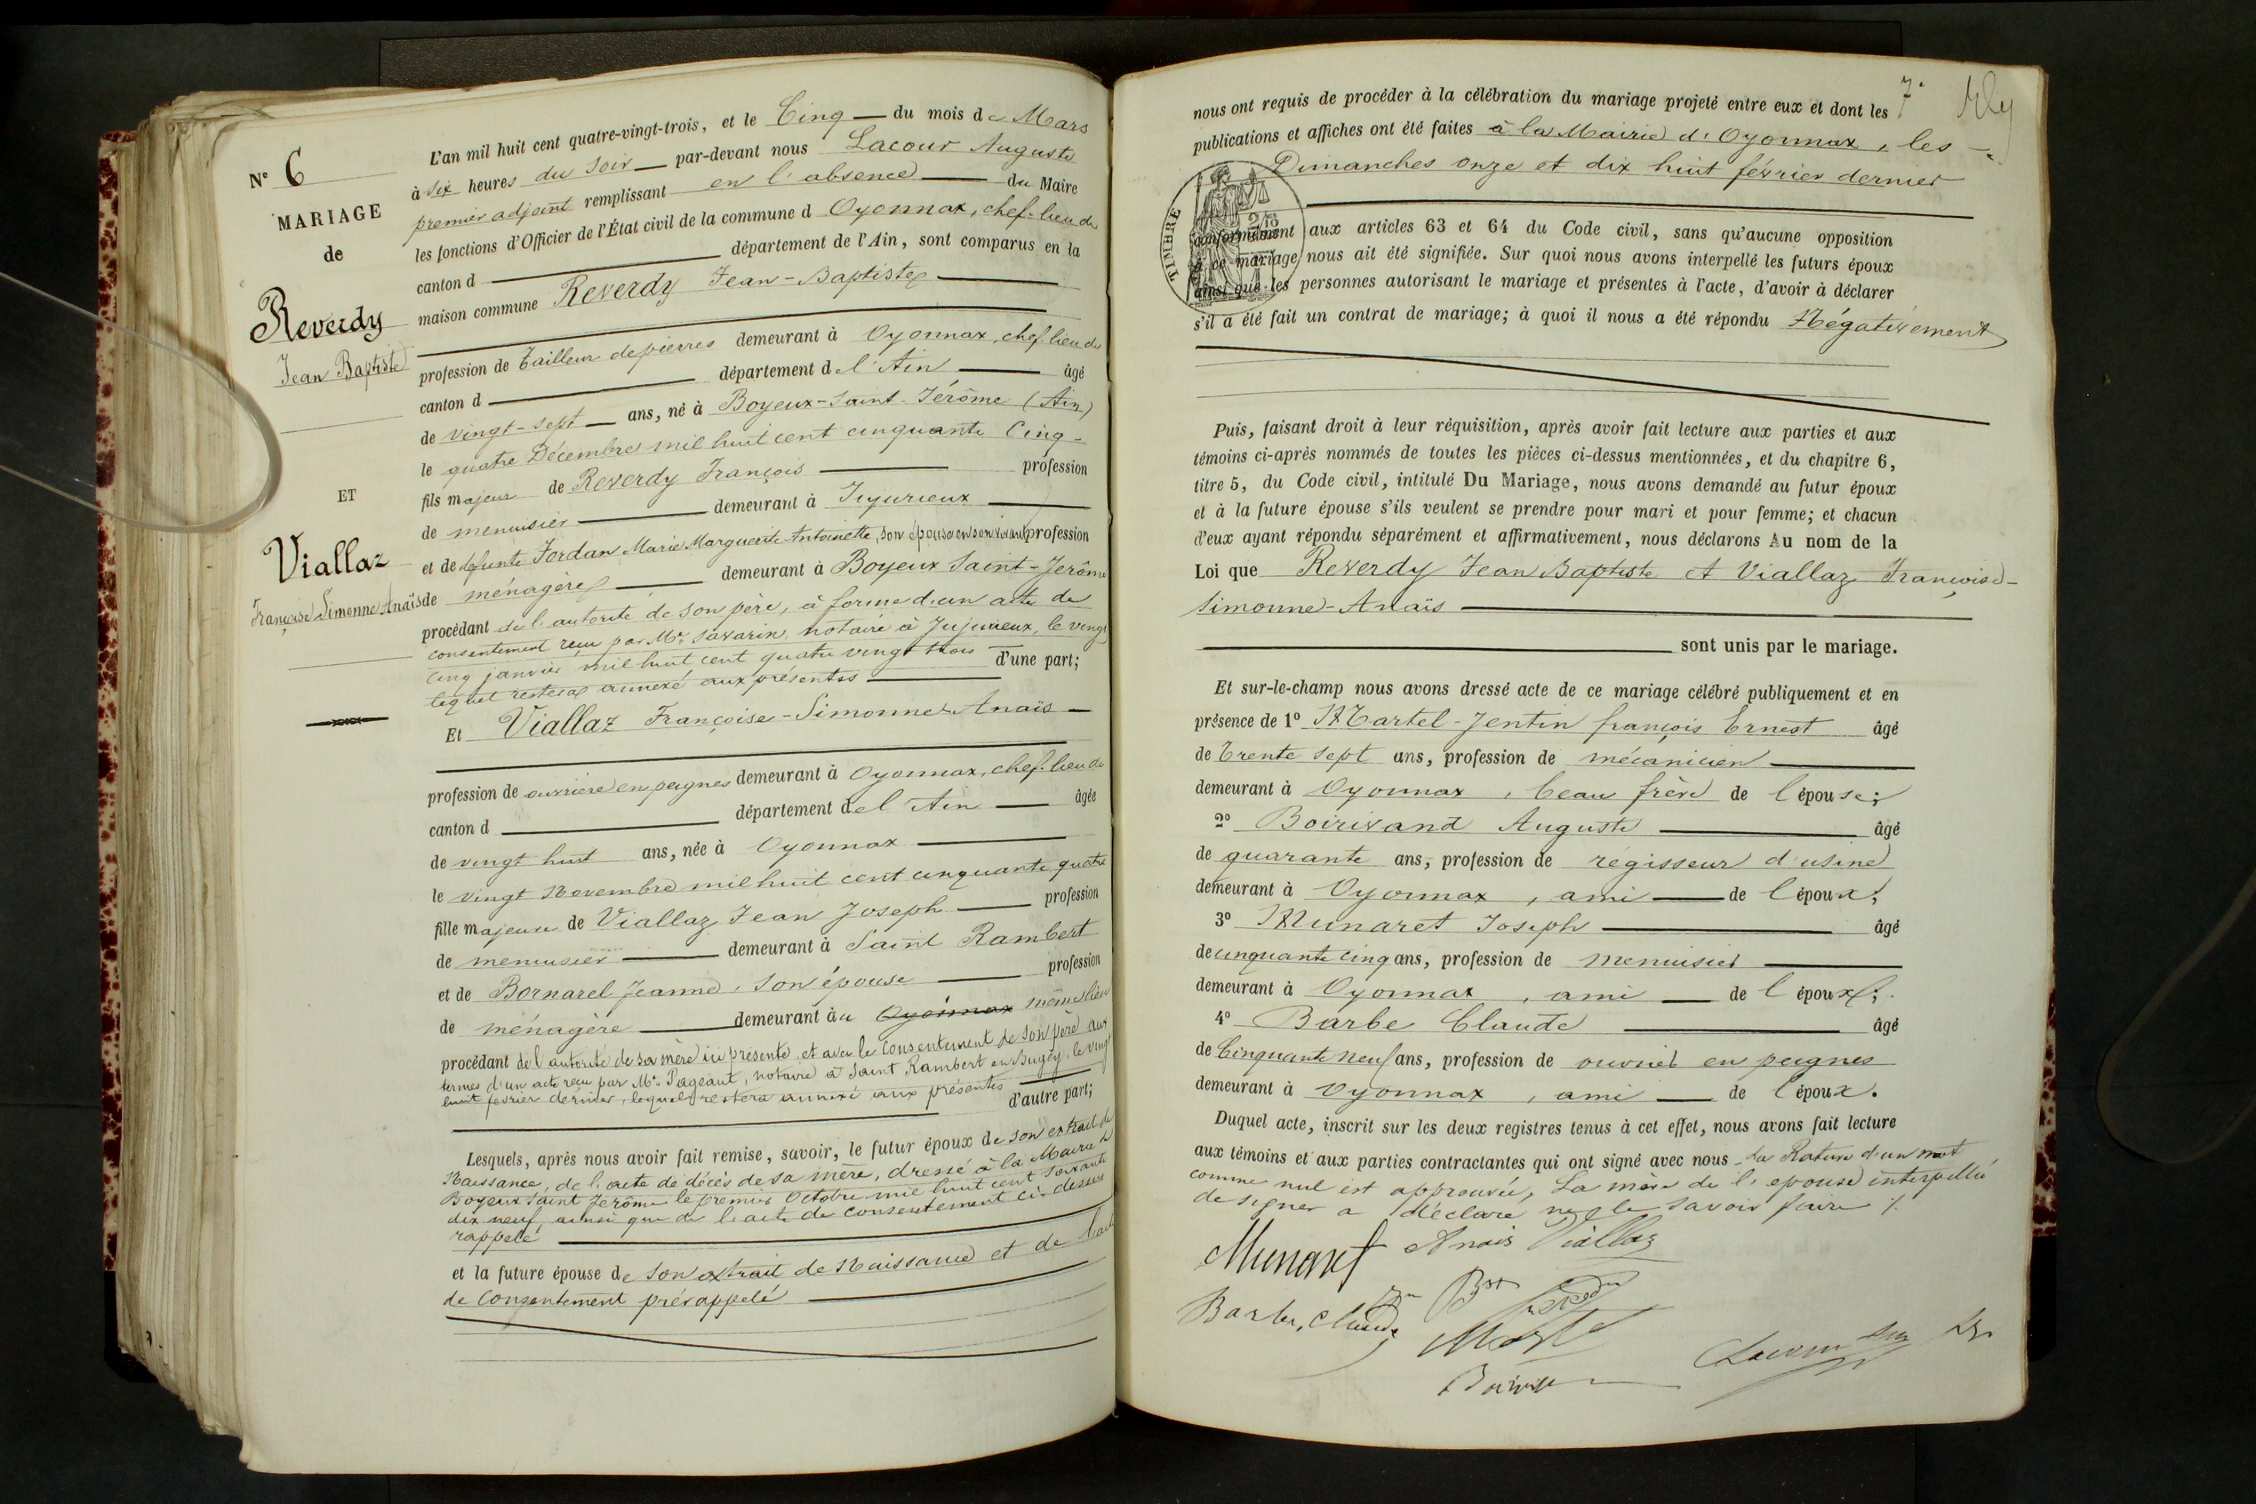 N° 6
MARIAGE
de
Reverdy
Jean Baptiste
ET
Viallaz
Françoise Simonne Anaïs
L'an mil huit cent quatre-vingt-trois, et le Cinq du mois de Mars
à six heures du soir par-devant nous Lacour Auguste
premier adjoint remplissant en l'absence du Maire
les fonctions d'Officier de l'État civil de la commune d Oyonnax, chef-lieu de
canton d département de l'Ain, sont comparus en la
maison commune Reverdy Jean-Baptiste
profession de Tailleur de pierres demeurant à Oyonnax, chef-lieu de
canton d département de l'Ain âgé
de vingt-sept ans, né à Boyeux-Saint-Jérôme (Ain)
le quatre Décembre mil huit cent cinquante Cinq
fils majeur de Reverdy François profession
de menuisier demeurant à Jujurieux
et de défunte Jordan Marie Marguerite Antoinette, son épouse en son vivant profession
de ménagère demeurant à Boyeux Saint-Jérôme
procédant de l'autorité de son père, à forme d'un acte de
consentement reçu par Me Savarin, notaire à Jujurieux, le vingt
cinq janvier mil huit cent quatre vingt trois d'une part;
lequel restera annexé aux présentes
Et Viallaz Françoise-Simonne-Anaïs
profession de ouvrière en peignes demeurant à Oyonnax, chef-lieu de
canton d département de l'Ain âgée
de vingt huit ans, née à Oyonnax
le vingt Novembre mil huit cent cinquante quatre
fille majeure de Viallaz Jean Joseph profession
de menuisier demeurant à Saint Rambert
et de Bornarel Jeanne, son épouse profession
de ménagère demeurant à u Oyonnax même lieu
procédant de l'autorité de sa mère ici présente et avec le consentement de son père aux
termes d'un acte reçu par Me Pageaut, notaire à Saint Rambert en Bugey, le vingt
huit février dernier, lequel restera annexé aux présentes d'autre part;
Lesquels, après nous avoir fait remise, savoir, le futur époux de son extrait de
Naissance, de l'acte de décès de sa mère, dressé à la Mairie de
Boyeux Saint Jérôme le premier Octobre mil huit cent soixante
dix neuf, ainsi que de l'acte de consentement ci-dessus
rappelé
et la future épouse de son extrait de Naissance et de l'acte
de consentement prérappelé
7e
nous ont requis de procéder à la célébration du mariage projeté entre eux et dont les
publications et affiches ont été faites à la Mairie d'Oyonnax, les
Dimanches onze et dix huit février dernier
TIMBRE
conformément aux articles 63 et 64 du Code civil, sans qu'aucune opposition
à ce mariage nous ait été signifiée. Sur quoi nous avons interpellé les futurs époux
ainsi que les personnes autorisant le mariage et présentes à l'acte, d'avoir à déclarer
s'il a été fait un contrat de mariage; à quoi il nous a été répondu Négativement
Puis, faisant droit à leur réquisition, après avoir fait lecture aux parties et aux
témoins ci-après nommés de toutes les pièces ci-dessus mentionnées, et du chapitre 6,
titre 5, du Code civil, intitulé Du Mariage, nous avons demandé au futur époux
et à la future épouse s'ils veulent se prendre pour mari et pour femme; et chacun
d'eux ayant répondu séparément et affirmativement, nous déclarons Au nom de la
Loi que Reverdy Jean Baptiste et Viallaz Françoise-
Simonne-Anaïs
sont unis par le mariage.
Et sur-le-champ nous avons dressé acte de ce mariage célébré publiquement et en
présence de 1° Martel-Jentin françois Ernest âgé
de Trente sept ans, profession de mécanicien
demeurant à Oyonnax, beau frère de l'épouse;
2° Boirivand Auguste âgé
de quarante ans, profession de régisseur d'usine
demeurant à Oyonnax, ami de l'époux;
3° Munaret Joseph âgé
de cinquante cinq ans, profession de menuisier
demeurant à Oyonnax, ami de l'époux;
4° Barbe Claude âgé
de Cinquante neuf ans, profession de ouvrier en peignes
demeurant à Oyonnax, ami de l'époux.
Duquel acte, inscrit sur les deux registres tenus à cet effet, nous avons fait lecture
aux témoins et aux parties contractantes qui ont signé avec nous La Rature d'un mot
comme nul est approuvée, La mère de l'épouse interpellée
de signer a déclaré ne le savoir faire /.
Munaret Anais Viallaz
Barbe, Claude